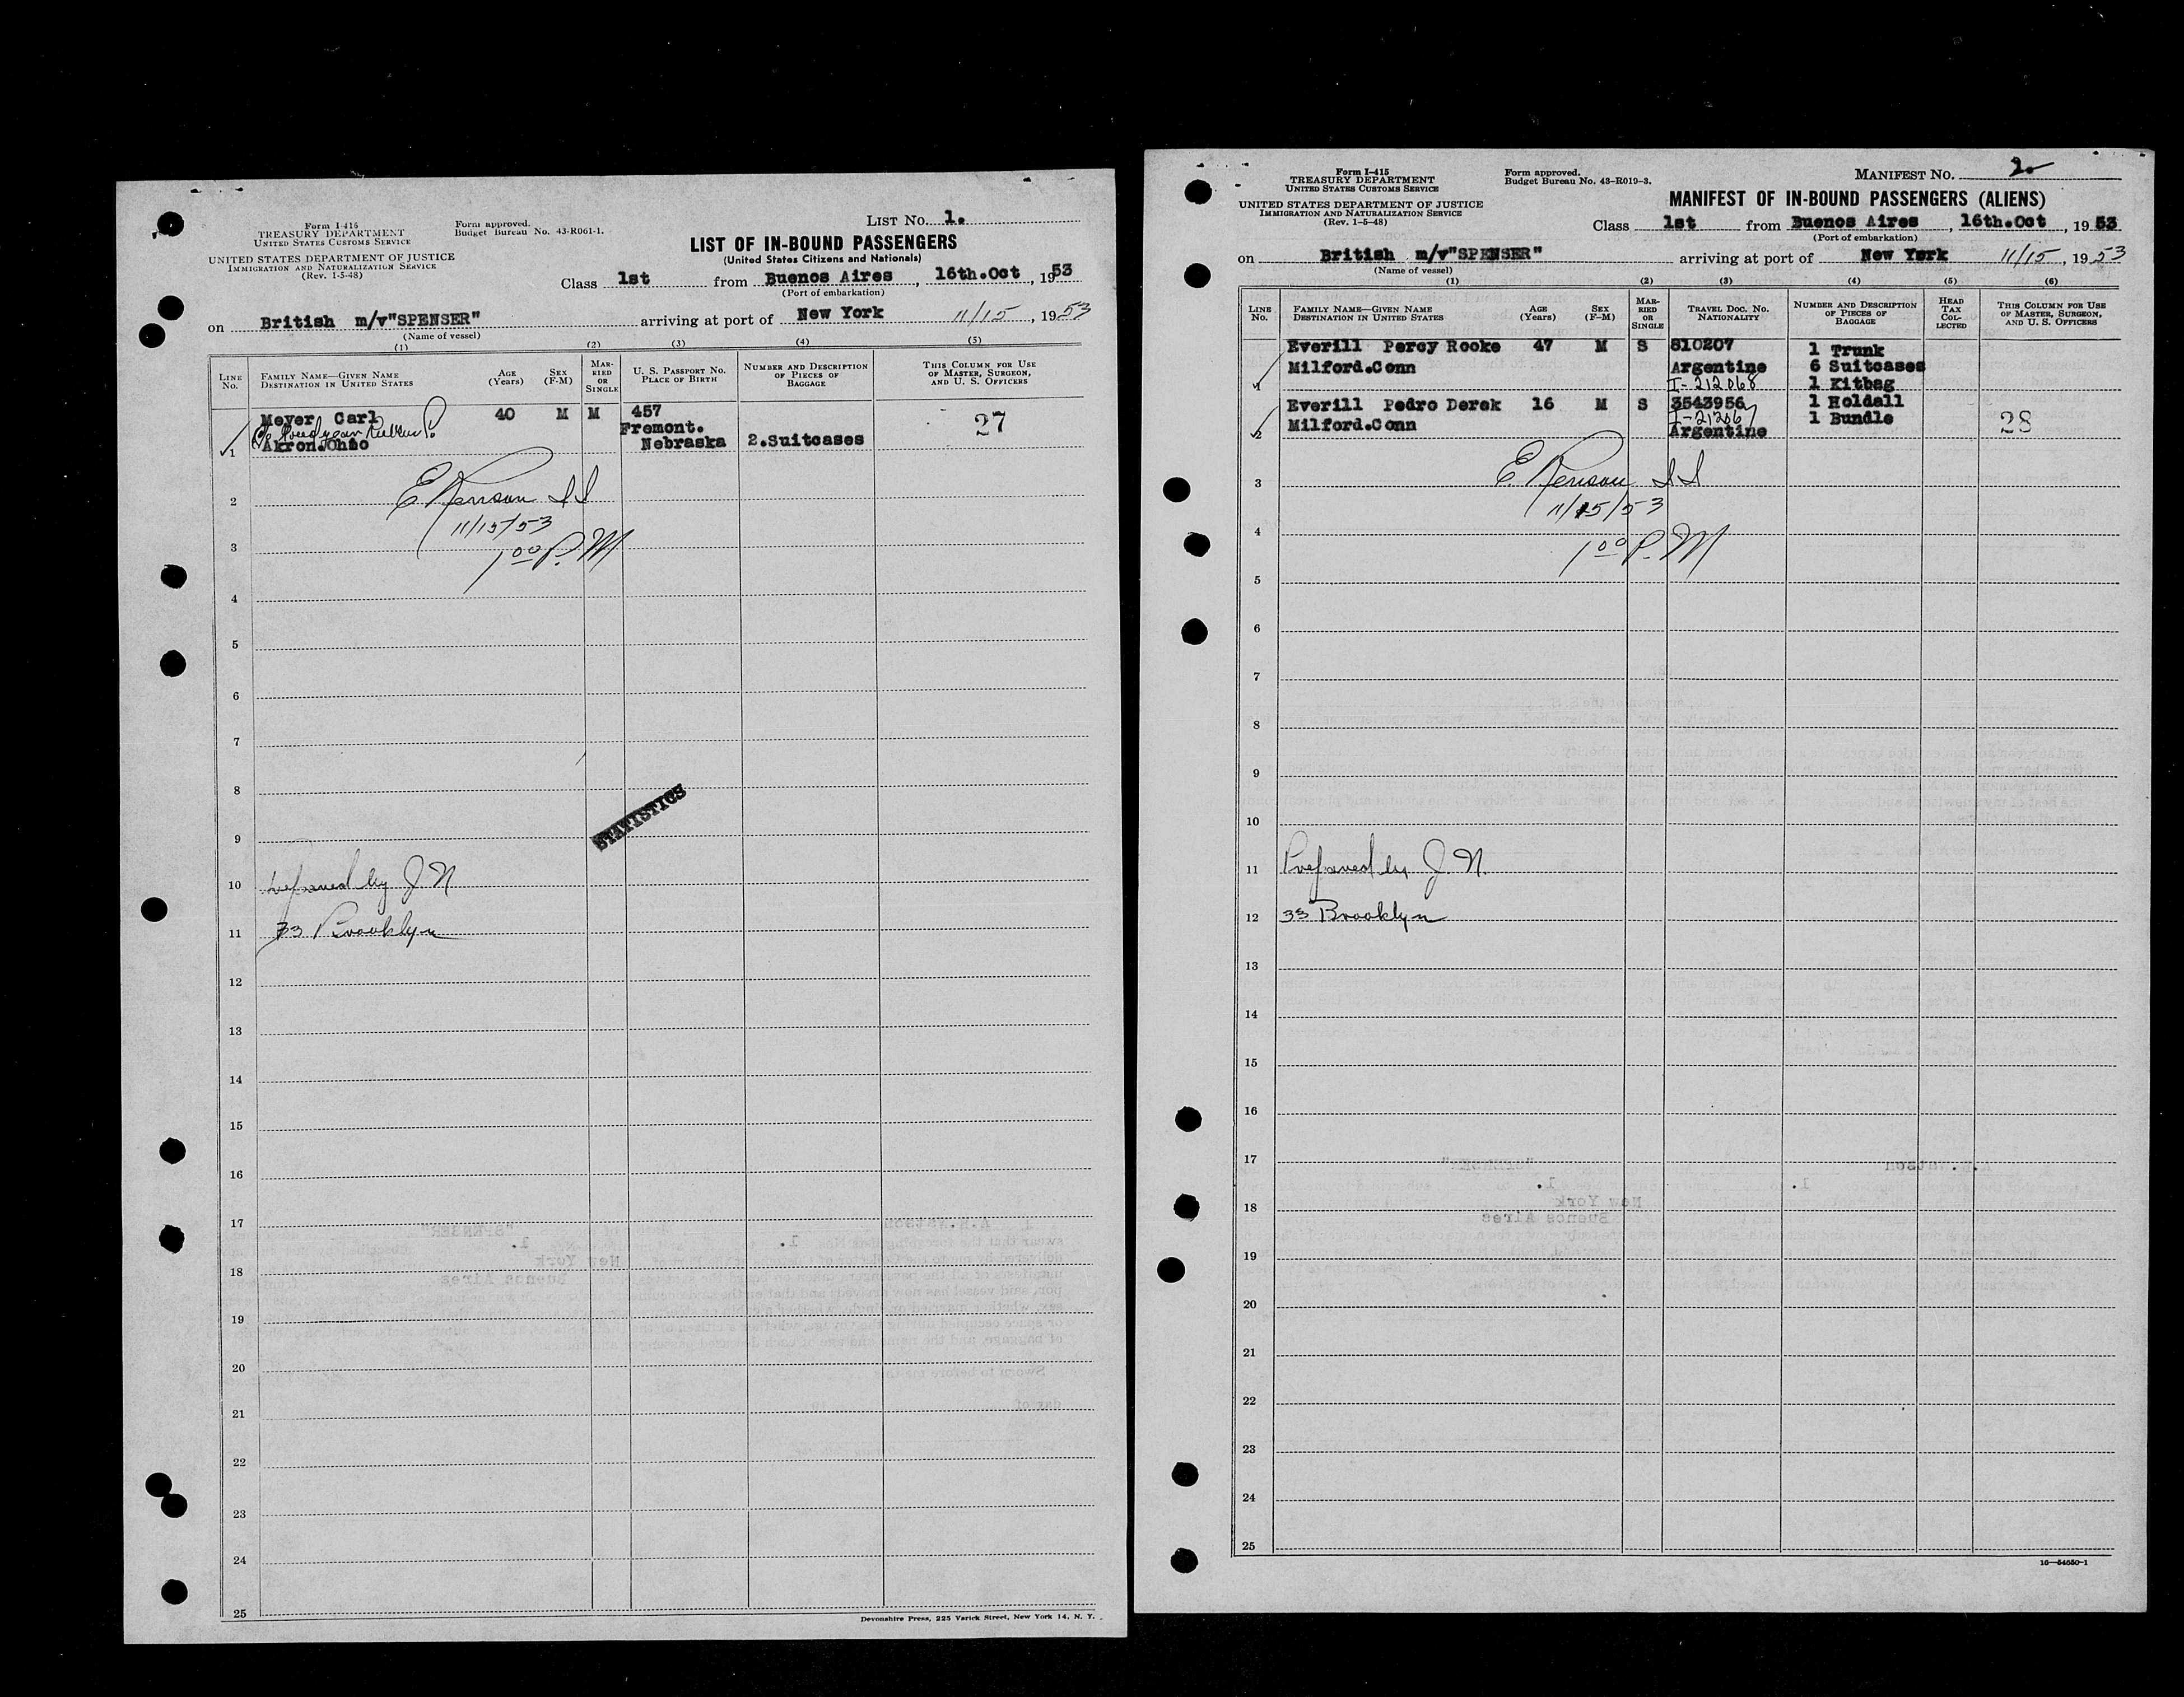 Form I-416
TREASURY DEPARTMENT
UNITED STATES CUSTOMS SERVICE
UNITED STATES DEPARTMENT OF JUSTICE
IMMIGRATION AND NATURALIZATION SERVICE
(Rev. 1-5-48)
Form approved.
Budget Bureau No. 43-R061-1.
LIST No. 1.
LIST OF IN-BOUND PASSENGERS
(United States Citizens and Nationals)
Class 1st from Buenos Aires, 16th.Oct, 1953
(Port of embarkation)
on British m/v"SPENSER" arriving at port of New York 11/15, 1953
(Name of vessel)
(1) (2) (3) (4) (5)
LINE No.
FAMILY NAME—GIVEN NAME
DESTINATION IN UNITED STATES
AGE (Years)
SEX (F-M)
MARRIED OR SINGLE
U. S. PASSPORT NO.
PLACE OF BIRTH
NUMBER AND DESCRIPTION OF PIECES OF BAGGAGE
THIS COLUMN FOR USE OF MASTER, SURGEON, AND U. S. OFFICERS
Meyer Carl 40 M M 457 27
c/o Goodyear Rubber
Fremont.
1 Akron.Ohio Nebraska 2.Suitcases
2
11/15/53
3
1 00 P.M
4
5
6
7
8
STATISTICS
9
10 Prepared by J N
11 33 Brooklyn
12
13
14
15
16
17
18
19
20
21
22
23
24
25
Devonshire Press, 225 Varick Street, New York 14, N. Y.
Form I-415
TREASURY DEPARTMENT
UNITED STATES CUSTOMS SERVICE
UNITED STATES DEPARTMENT OF JUSTICE
IMMIGRATION AND NATURALIZATION SERVICE
(Rev. 1-5-48)
Form approved.
Budget Bureau No. 43-R019-3.
MANIFEST No. 2.
MANIFEST OF IN-BOUND PASSENGERS (ALIENS)
Class 1st from Buenos Aires, 16th.Oct, 1953
(Port of embarkation)
on British m/v"SPENSER" arriving at port of New York 11/15, 1953
(Name of vessel)
(1) (2) (3) (4) (5) (6)
LINE No.
FAMILY NAME—GIVEN NAME
DESTINATION IN UNITED STATES
AGE (Years)
SEX (F-M)
MARRIED OR SINGLE
TRAVEL DOC. NO.
NATIONALITY
NUMBER AND DESCRIPTION OF PIECES OF BAGGAGE
HEAD TAX COLLECTED
THIS COLUMN FOR USE OF MASTER, SURGEON, AND U. S. OFFICERS
Everill Percy Rooke 47 M S 810207 1 Trunk
Milford.Conn Argentine 6 Suitcases
1 I-212068 1 Kitbag
Everill Pedro Derek 16 M S 3543956 1 Holdall
Milford.Conn I-212067 1 Bundle 28
2 Argentine
3
11/15/53
4
1 00 P.M
5
6
7
8
9
10
11 Prepared by J.N.
12 33 Brooklyn
13
14
15
16
17
18
19
20
21
22
23
24
25
16—54650-1